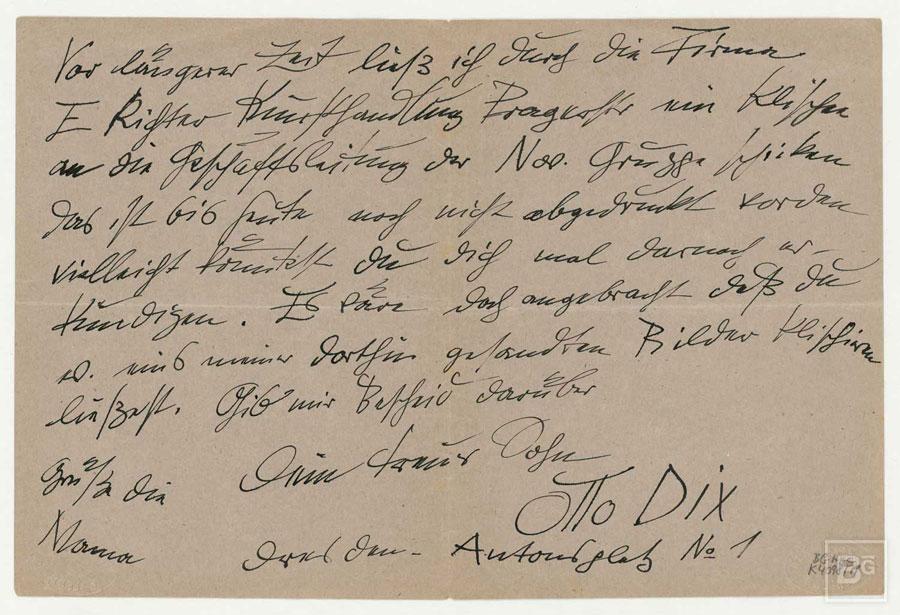 Vor längerer Zeit ließ ich durch die Firma
E Richter Kunsthandlung Pragerstr ein Klischee
an die Geschäftsleitung der Nov. Gruppe schicken
das ist bis heute noch nicht abgedruckt worden
vielleicht könntest du dich mal darnach er-
kundigen. Es wäre doch angebracht daß du
ev. eins meiner dorthin gesandten Bilder klischiren
ließest. Gib mir Bescheid darüber
Dein treuer Sohn
Otto Dix
Grüße die
Mama
Dresden- Antonsplatz No 1
BG